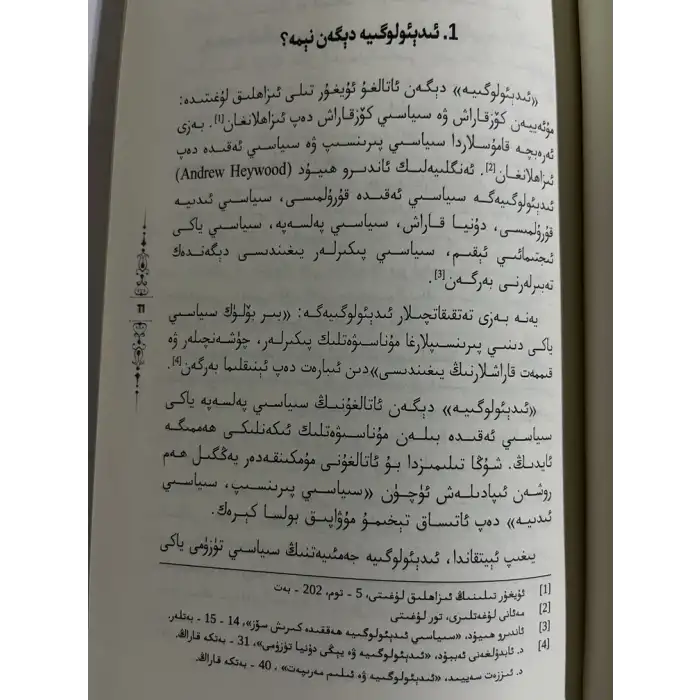 1. ئىدېئولوگىيە دېگەن نېمە؟
«ئىدېئولوگىيە» دېگەن ئاتالغۇ ئۇيغۇر تىلى ئىزاھلىق لۇغىتىدە:
مۇئەييەن كۆزقاراش ۋە سىياسىي كۆزقاراش دەپ ئىزاھلانغان[1]. بەزى
ئەرەبچە قامۇسلاردا سىياسىي پىرىنسىپ ۋە سىياسىي ئەقىدە دەپ
ئىزاھلانغان[2]. ئەنگلىيەلىك ئاندىرو ھىيۇد (Andrew Heywood)
ئىدېئولوگىيەگە سىياسىي ئەقىدە قۇرۇلمىسى، سىياسىي ئىدىيە
قۇرۇلمىسى، دۇنيا قاراش، سىياسىي پەلسەپە، سىياسىي ياكى
ئىجتىمائىي ئېقىم، سىياسىي پىكىرلەر يىغىندىسى دېگەندەك
تەبىرلەرنى بەرگەن[3].
يەنە بەزى تەتقىقاتچىلار ئىدېئولوگىيەگە: «بىر بۆلۈك سىياسىي
ياكى دىنىي پىرىنسىپلارغا مۇناسىۋەتلىك پىكىرلەر، چۈشەنچىلەر ۋە
قىممەت قاراشلارنىڭ يىغىندىسى»دىن ئىبارەت دەپ ئېنىقلىما بەرگەن[4].
«ئىدېئولوگىيە» دېگەن ئاتالغۇنىڭ سىياسىي پەلسەپە ياكى
سىياسىي ئەقىدە بىلەن مۇناسىۋەتلىك ئىكەنلىكى ھەممىگە
ئايدىڭ. شۇڭا تىلىمىزدا بۇ ئاتالغۇنى مۇمكىنقەدەر يەڭگىل ھەم
روشەن ئىپادىلەش ئۈچۈن «سىياسىي پىرىنسىپ، سىياسىي
ئىدىيە» دەپ ئاتىساق تېخىمۇ مۇۋاپىق بولسا كېرەك.
يىغىپ ئېيتقاندا، ئىدېئولوگىيە جەمئىيەتنىڭ سىياسىي تۈزۈمى ياكى
11
[1] ئۇيغۇر تىلىنىڭ ئىزاھلىق لۇغىتى، 5 - توم، 202 - بەت
[2] مەئانى لۇغەتلىرى، تور لۇغىتى
[3] ئاندىرو ھىيۇد، «سىياسىي ئىدېئولوگىيە ھەققىدە كىرىش سۆز»، 14 - 15 - بەتلەر.
[4] د. ئابدۇلغەنى ئەببۇد، «ئىدېئولوگىيە ۋە يېڭى دۇنيا تۈزۈمى»، 31 - بەتكە قاراڭ.
د. ئىززەت سەييىد، «ئىدېئولوگىيە ۋە ئىلىم مەرىپەت» ، 40 - بەتكە قاراڭ.